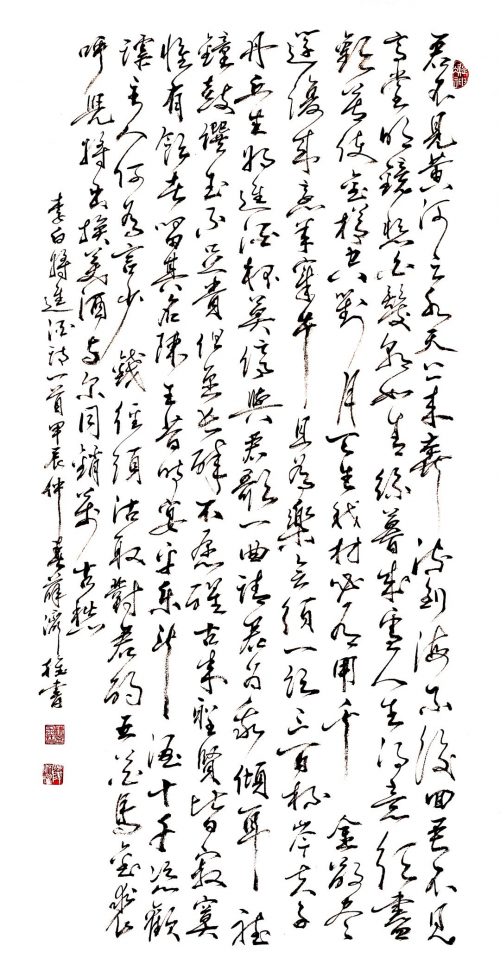 君不見黄河之水天上来奔流到海不復回君不見
高堂明鏡悲白髮朝如青絲暮成雪人生得意須盡
歡莫使金樽空對月天生我材必有用千金散尽
還復来烹羊宰牛且為樂會須一飲三百杯岑夫子
丹丘生将進酒杯莫停與君歌一曲請君為我傾耳聽
鐘鼓饌玉不足貴但愿長醉不愿醒古来聖賢皆寂寞
惟有飲者留其名陳王昔時宴平樂斗酒十千恣歡
謔主人何為言少錢徑須沽取對君酌五花馬千金裘
呼兒將出換美酒与尔同銷萬古愁
李白將進酒詩一首甲辰仲春薛濟拴書